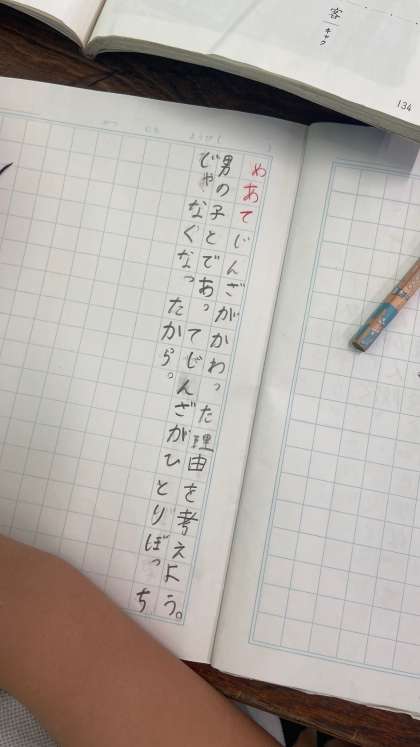 客
キャク
134
めあてじんざがかわった理由を考えよう。
男の子とであってじんざがひとりぼっち
じゃなくなったから。